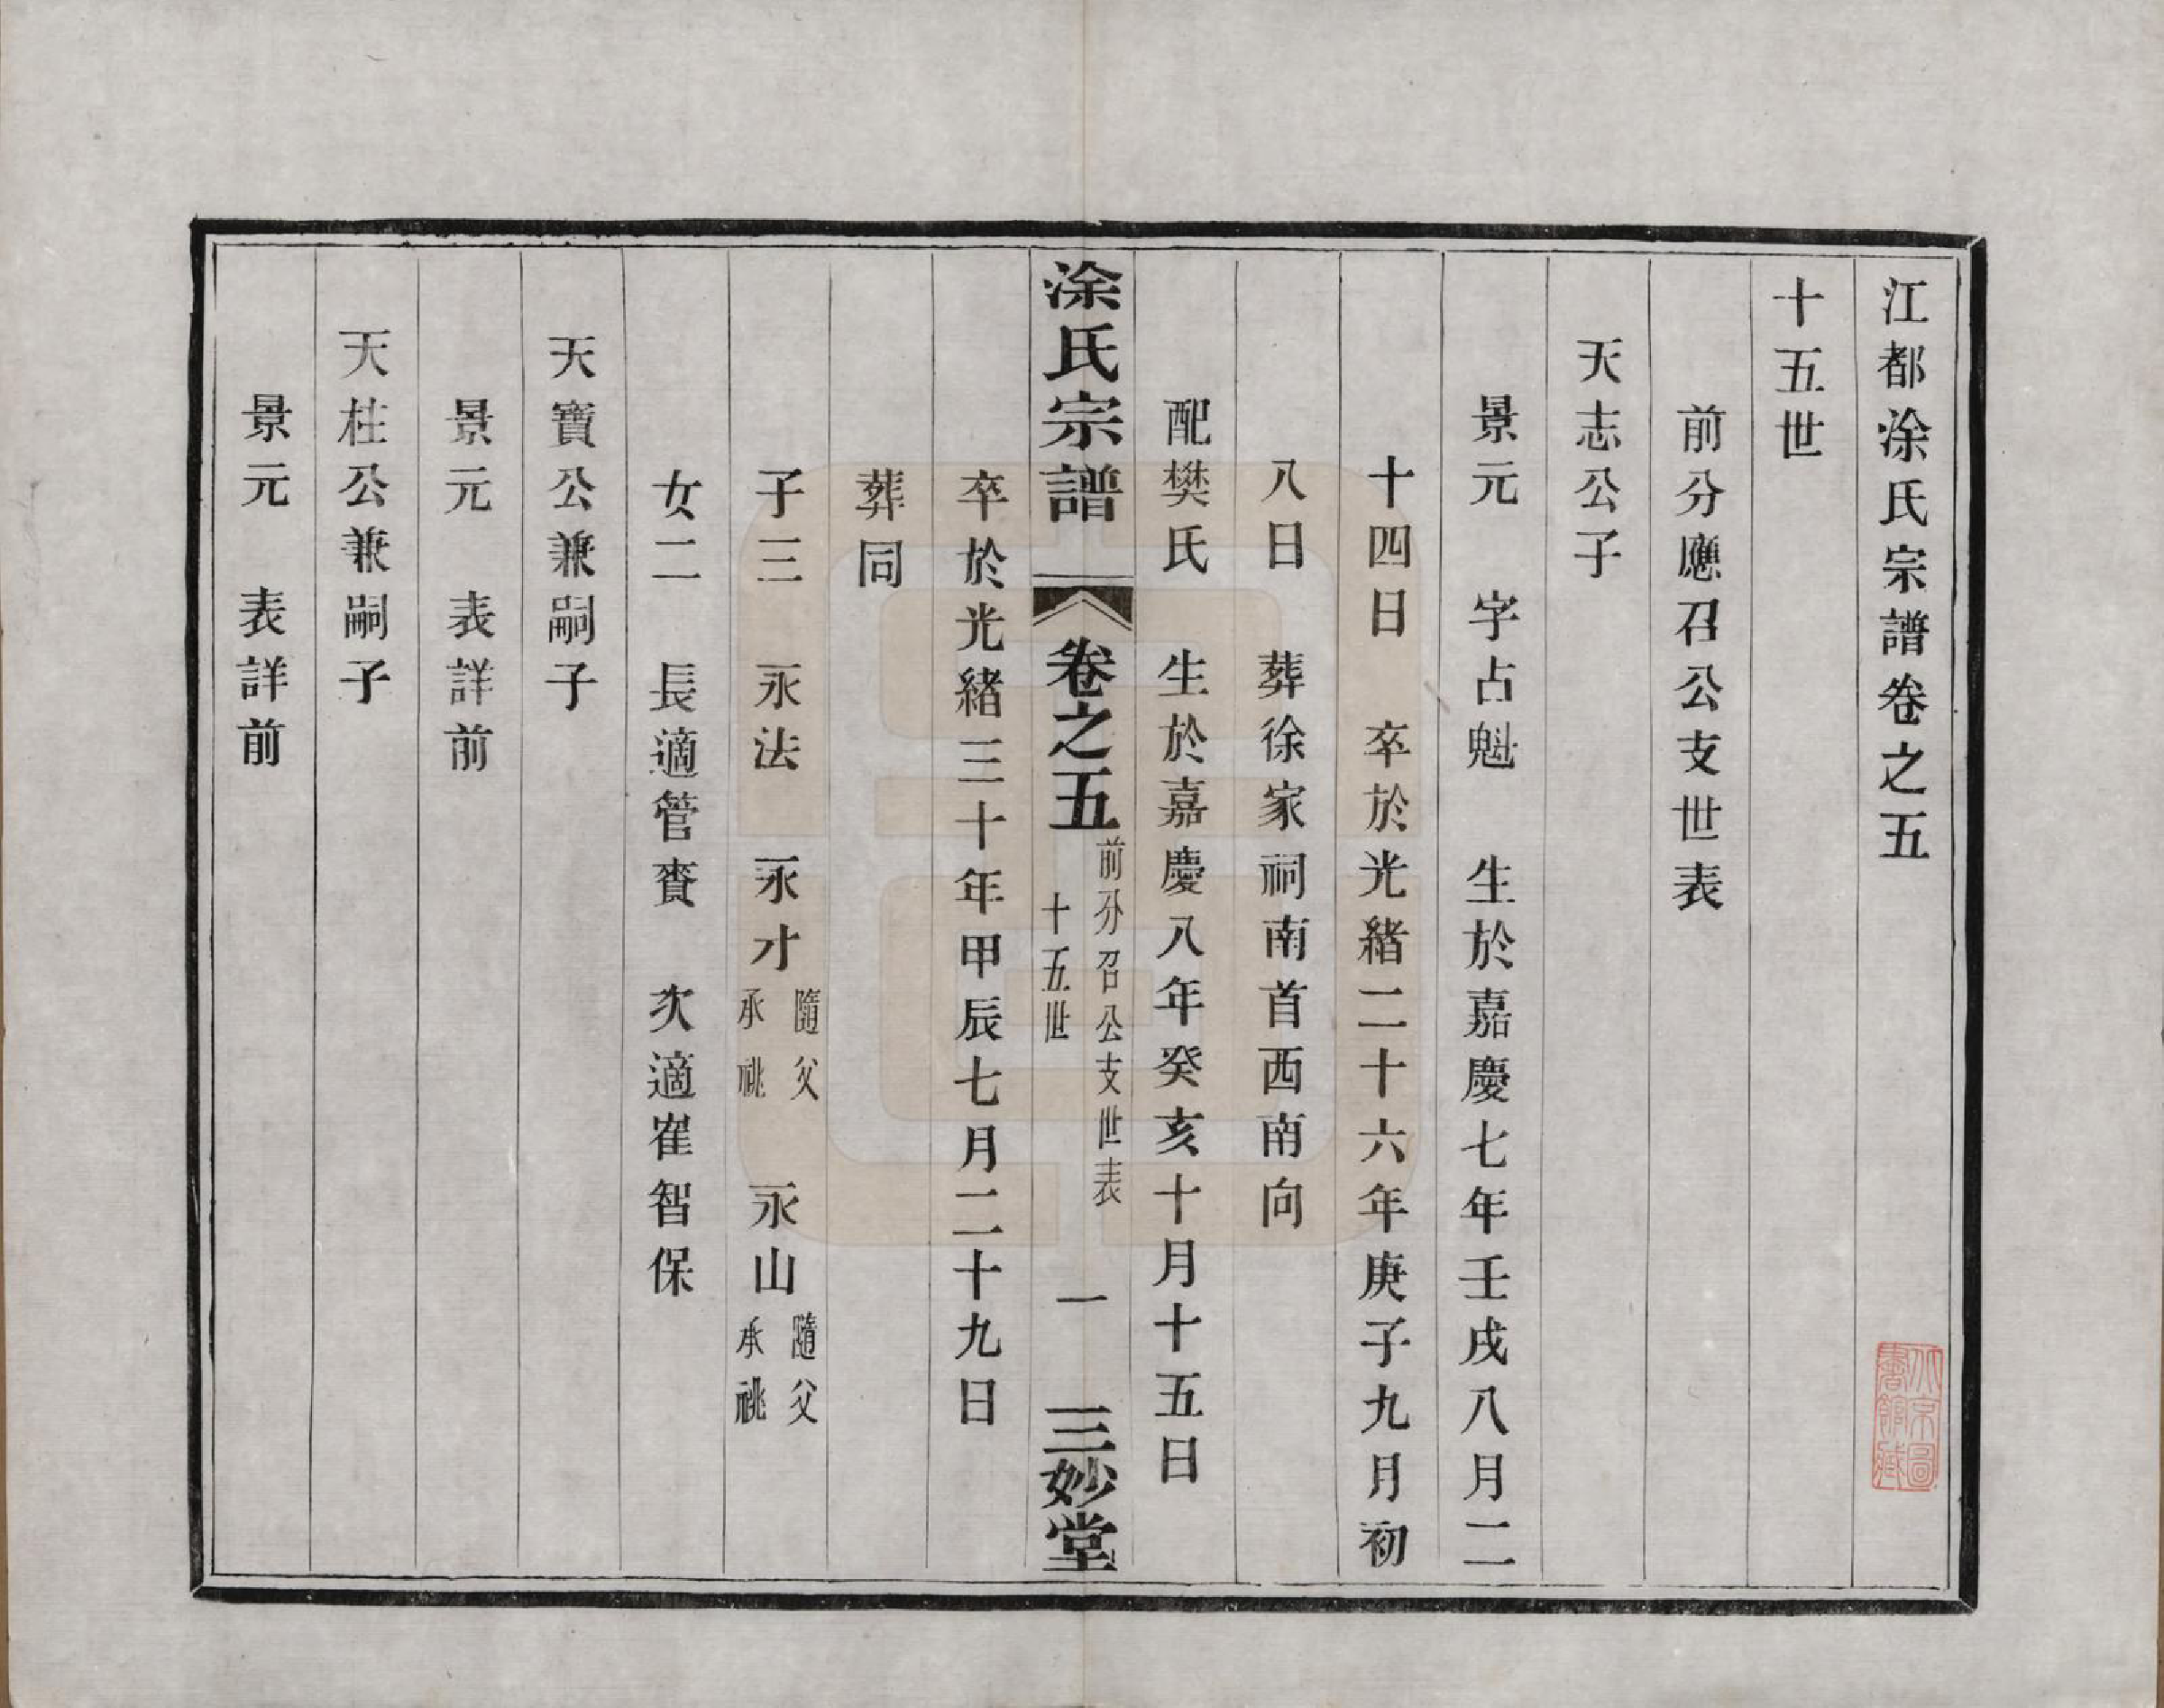 江都涂氏宗譜卷之五
十五世
前分應召公支世表
天志公子
景元　字占魁　生於嘉慶七年壬戌八月二
十四日　卒於光緒二十六年庚子九月初
八日　葬徐家祠南首西南向
配樊氏　生於嘉慶八年癸亥十月十五日
涂氏宗譜　卷之五　前分召公支世表　十五世　一　三妙堂
卒於光緒三十年甲辰七月二十九日
葬同
子三　永法　永才隨父承祧　永山隨父承祧
女二　長適管賚　次適崔智保
天寶公兼嗣子
景元　表詳前
天柱公兼嗣子
景元　表詳前